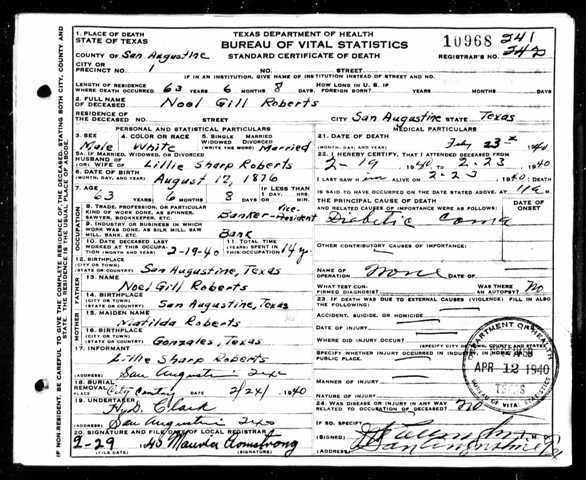 1. PLACE OF DEATH
STATE OF TEXAS
TEXAS DEPARTMENT OF HEALTH
BUREAU OF VITAL STATISTICS
STANDARD CERTIFICATE OF DEATH
10968
REGISTRAR'S NO.
COUNTY OF San Augustine
CITY OR PRECINCT NO. 1 NO. STREET
IF IN AN INSTITUTION, GIVE NAME OF INSTITUTION INSTEAD OF STREET AND NO.
LENGTH OF RESIDENCE WHERE DEATH OCCURRED 63 YEARS 6 MONTHS 8 DAYS HOW LONG IN U. S. IF FOREIGN BORN? YEARS MONTHS DAYS
2. FULL NAME OF DECEASED Noel Gill Roberts
RESIDENCE OF THE DECEASED STREET NO. CITY San Augustine STATE Texas
PERSONAL AND STATISTICAL PARTICULARS
MEDICAL PARTICULARS
3. SEX Male
4. COLOR OR RACE White
5. SINGLE MARRIED WIDOWED DIVORCED (WRITE THE WORD) Married
5A. IF MARRIED, WIDOWED, OR DIVORCED HUSBAND OF (OR) WIFE OF Lillie Sharp Roberts
6. DATE OF BIRTH August 17, 1876
7. AGE YEARS 63 MONTHS 6 DAYS 8 IF LESS THAN 1 DAY, HRS. MIN.
OCCUPATION
8. TRADE, PROFESSION, OR PARTICULAR KIND OF WORK DONE, AS SPINNER, SAWYER, BOOKKEEPER, ETC. Banker-Vice-President
9. INDUSTRY OR BUSINESS IN WHICH WORK WAS DONE, AS SILK MILL, SAW MILL, BANK, ETC. Bank
10. DATE DECEASED LAST WORKED AT THIS OCCUPATION 2-19-40
11. TOTAL TIME (YEARS) SPENT IN THIS OCCUPATION 14 y
12. BIRTHPLACE (CITY OR TOWN) (STATE OR COUNTRY) San Augustine, Texas
FATHER
13. NAME Noel Gill Roberts
14. BIRTHPLACE (CITY OR TOWN) (STATE OR COUNTRY) San Augustine, Texas
MOTHER
15. MAIDEN NAME Matilda Roberts
16. BIRTHPLACE (CITY OR TOWN) (STATE OR COUNTRY) Gonzales, Texas
17. INFORMANT Lillie Sharp Roberts
(ADDRESS) San Augustine Texas
18. BURIAL REMOVAL PLACE City Cemetery DATE 2/24/1940
19. UNDERTAKER Clark
(ADDRESS) San Augustine Texas
20. SIGNATURE AND FILE DATE OF LOCAL REGISTRAR
2-29 40 Armstrong
(FILE DATE) (SIGNATURE)
21. DATE OF DEATH (MONTH, DAY, AND YEAR) Feby 23rd 1940
22. I HEREBY CERTIFY, THAT I ATTENDED DECEASED FROM 2-19 1940, TO 2-23 1940
I LAST SAW him ALIVE ON 2-23 1940; DEATH IS SAID TO HAVE OCCURRED ON THE DATE STATED ABOVE, AT M.
THE PRINCIPAL CAUSE OF DEATH AND RELATED CAUSES OF IMPORTANCE WERE AS FOLLOWS: DATE OF ONSET
Diabetic Coma
OTHER CONTRIBUTORY CAUSES OF IMPORTANCE:
NAME OF OPERATION None DATE OF
WHAT TEST CONFIRMED DIAGNOSIS WAS THERE AN AUTOPSY? No
23. IF DEATH WAS DUE TO EXTERNAL CAUSES (VIOLENCE) FILL IN ALSO THE FOLLOWING:
ACCIDENT, SUICIDE, OR HOMICIDE
DATE OF INJURY
WHERE DID INJURY OCCUR?
(SPECIFY CITY OR COUNTY AND STATE)
SPECIFY WHETHER INJURY OCCURRED IN INDUSTRY, IN HOME, OR IN PUBLIC PLACE.
MANNER OF INJURY
NATURE OF INJURY
24. WAS DISEASE OR INJURY IN ANY WAY RELATED TO OCCUPATION OF DECEASED? No
IF SO, SPECIFY
(SIGNED)
(ADDRESS) San Augustine
DEPARTMENT OF HEALTH
APR 12 1940
TEXAS
BUREAU OF VITAL STATISTICS